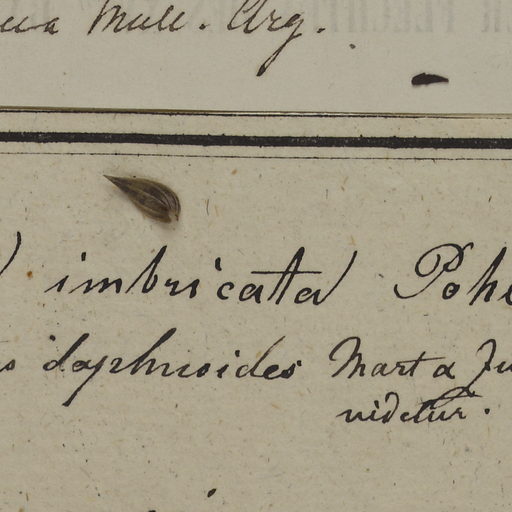 Muell. Arg.
imbricata Poh
daphnoides Mart a
videtur.